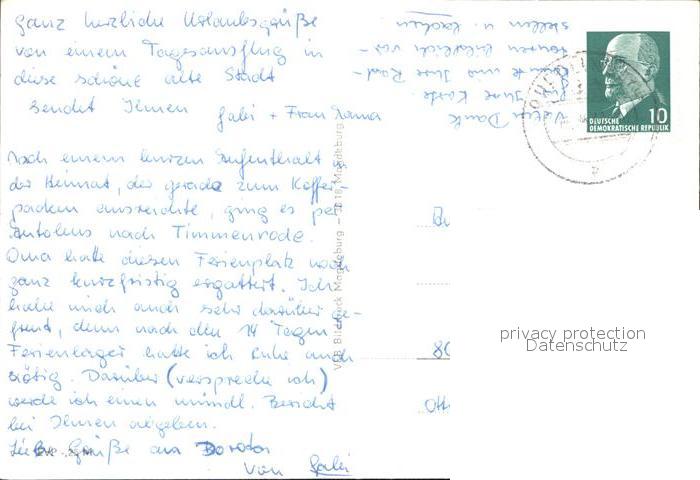 ganz herzliche Urlaubsgrüße
von einem Tagesausflug in
diese schöne alte Stadt
sendet Ihnen Gabi + Frau
Nach einem kurzen Aufenthalt in
der Heimat, der gerade zum Koffer-
packen ausreichte, ging es per
Autobus nach Timmenrode.
Oma hatte diesen Ferienplatz noch
ganz kurzfristig ergattert. Ich
habe mich auch sehr darüber ge-
freut, denn nach den 14 Tagen
Ferienlager hatte ich Ruhe auch
nötig. Darüber (verspreche ich)
werde ich einen mündl. Bericht
bei Ihnen abgeben.
Liebe Grüße an
von Gabi
Vielen Dank
für Ihre Karte.
konnte uns Ihre Rad-
touren bildlich vor-
stellen u. lachen
DEUTSCHE
DEMOKRATISCHE REPUBLIK
10
VEB Bild Magdeburg
80
privacy protection
Datenschutz